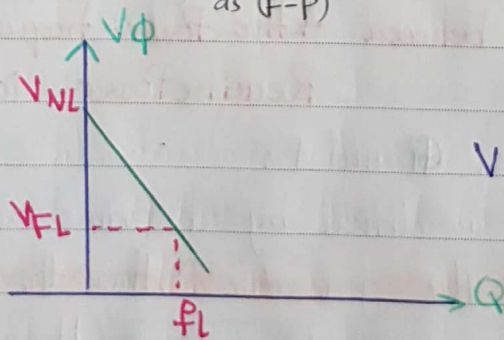 as (F-P)
VΦ
V_NL
V
V_FL
Q
fL